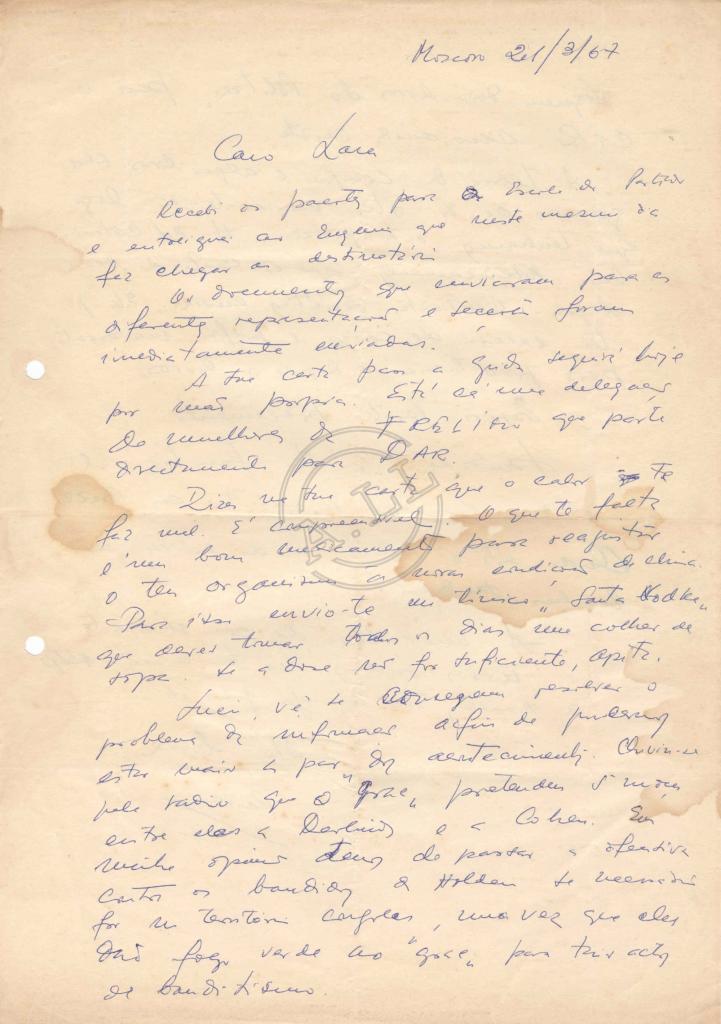 Moscovo 21/3/67
Caro Lara
Recebi os pacotes para a Escola do Partido
e entreguei ao Eugénio que neste mesmo dia
fez chegar ao destinatário
Os documentos que enviaram para as
diferentes representações e secções foram
imediatamente enviadas.
A tua carta para a seguirá hoje
por mão própria. Está cá uma delegação
de mulheres da FRELIMO que parte
directamente para DAR.
Dizes na tua carta que o calor te
faz mal. É compreensível. O que te falta
é um bom medicamento para reajustar
o teu organismo às novas condições de clima.
Para isso envio-te um tónico „Santa Vodka„
que deves tomar todos os dias uma colher de
sopa. Se a dose não for suficiente, apita.
Lúcio, vê se conseguem resolver o
problema da informação afim de podermos
estar mais a par dos acontecimentos. Ouviu-se
pela rádio que o „grae„ pretendem 5
entre elas a Deolinda e a Cohen. Em
minha opinião temos de passar a ofensiva
contra os bandidos de Holden se necessário
for em território congolês, uma vez que eles
dão fogo verde ao "grae„ para tais actos
de banditismo.
A.LL